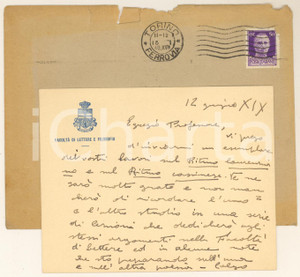 TORINO
FERROVIA
FACOLTÀ DI LETTERE E FILOSOFIA
12 giugno XIX
Egregio Professore,
di
d'inviarmi un esemplare
dei vostri lavori sul Ritmo laurenzia
no e sul Ritmo cassinese. Ve ne
sarò molto grato e non man
cherò di ricordare l'uno
e l'altro studio in una serie
di lezioni che dedicherò agli
stessi argomenti nella Facoltà
di Lettere ed in alcune note
che sto preparando sull'uno
e sull'altro poema. Colgo